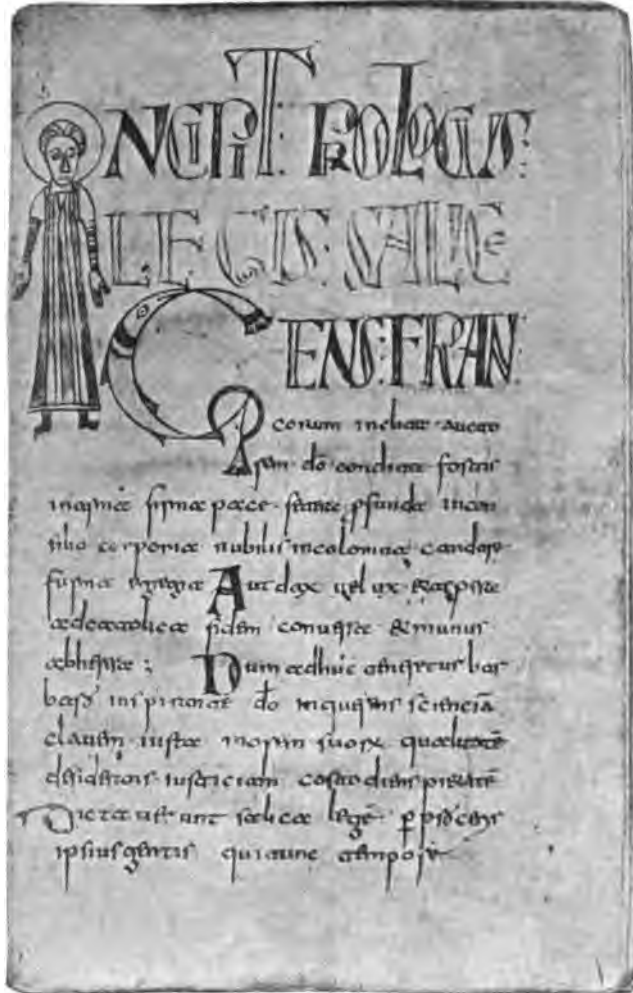 INCIPIT : PROLOGUS :
LEGIS : SALICE
GENS : FRAN
corum inclita · aucto
rem · dō · condita · fortis
in arma firma pace · fetere · profunda in con
silio corporia nubilis incolomna · candore
furma egregia Autdax uelux et aspera
ad catolica fidem conuersa et munus
ab herese ; Dum adhuc teneretus bar
inspirante dō inquerens sciencia
clauem · iusta morem suorum qualitatē
desiderans · iusticiam costodiens pietatē
Dictauerunt salica legē per
ipsius gentis qui tunc tempore